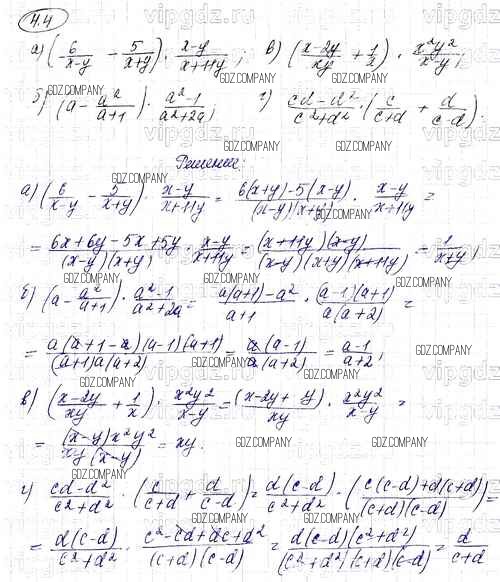 4.4
а) (6/(x-y) - 5/(x+y)) · (x-y)/(x+11y); в) ((x-2y)/xy + 1/x) · x²y²/(x-y);
б) (a - a²/(a+1)) · (a²-1)/(a²+2a); г) (cd-d²)/(c²+d²) · (c/(c+d) + d/(c-d)).
Решение:
а) (6/(x-y) - 5/(x+y)) · (x-y)/(x+11y) = (6(x+y)-5(x-y))/((x-y)(x+y)) · (x-y)/(x+11y) =
= (6x+6y-5x+5y)/((x-y)(x+y)) · (x-y)/(x+11y) = ((x+11y)(x-y))/((x-y)(x+y)(x+11y)) = 1/(x+y);
б) (a - a²/(a+1)) · (a²-1)/(a²+2a) = (a(a+1)-a²)/(a+1) · ((a-1)(a+1))/(a(a+2)) =
= (a(a+1-a)(a-1)(a+1))/((a+1)a(a+2)) = (a(a-1))/(a(a+2)) = (a-1)/(a+2);
в) ((x-2y)/xy + 1/x) · x²y²/(x-y) = ((x-2y+y)/xy) · x²y²/(x-y) =
= ((x-y)x²y²)/(xy(x-y)) = xy.
г) (cd-d²)/(c²+d²) · (c/(c+d) + d/(c-d)) = (d(c-d))/(c²+d²) · ((c(c-d)+d(c+d))/((c+d)(c-d))) =
= (d(c-d))/(c²+d²) · (c²-cd+dc+d²)/((c+d)(c-d)) = (d(c-d)(c²+d²))/((c²+d²)(c+d)(c-d)) = d/(c+d)
GDZ.COMPANY
vipgdz.ru